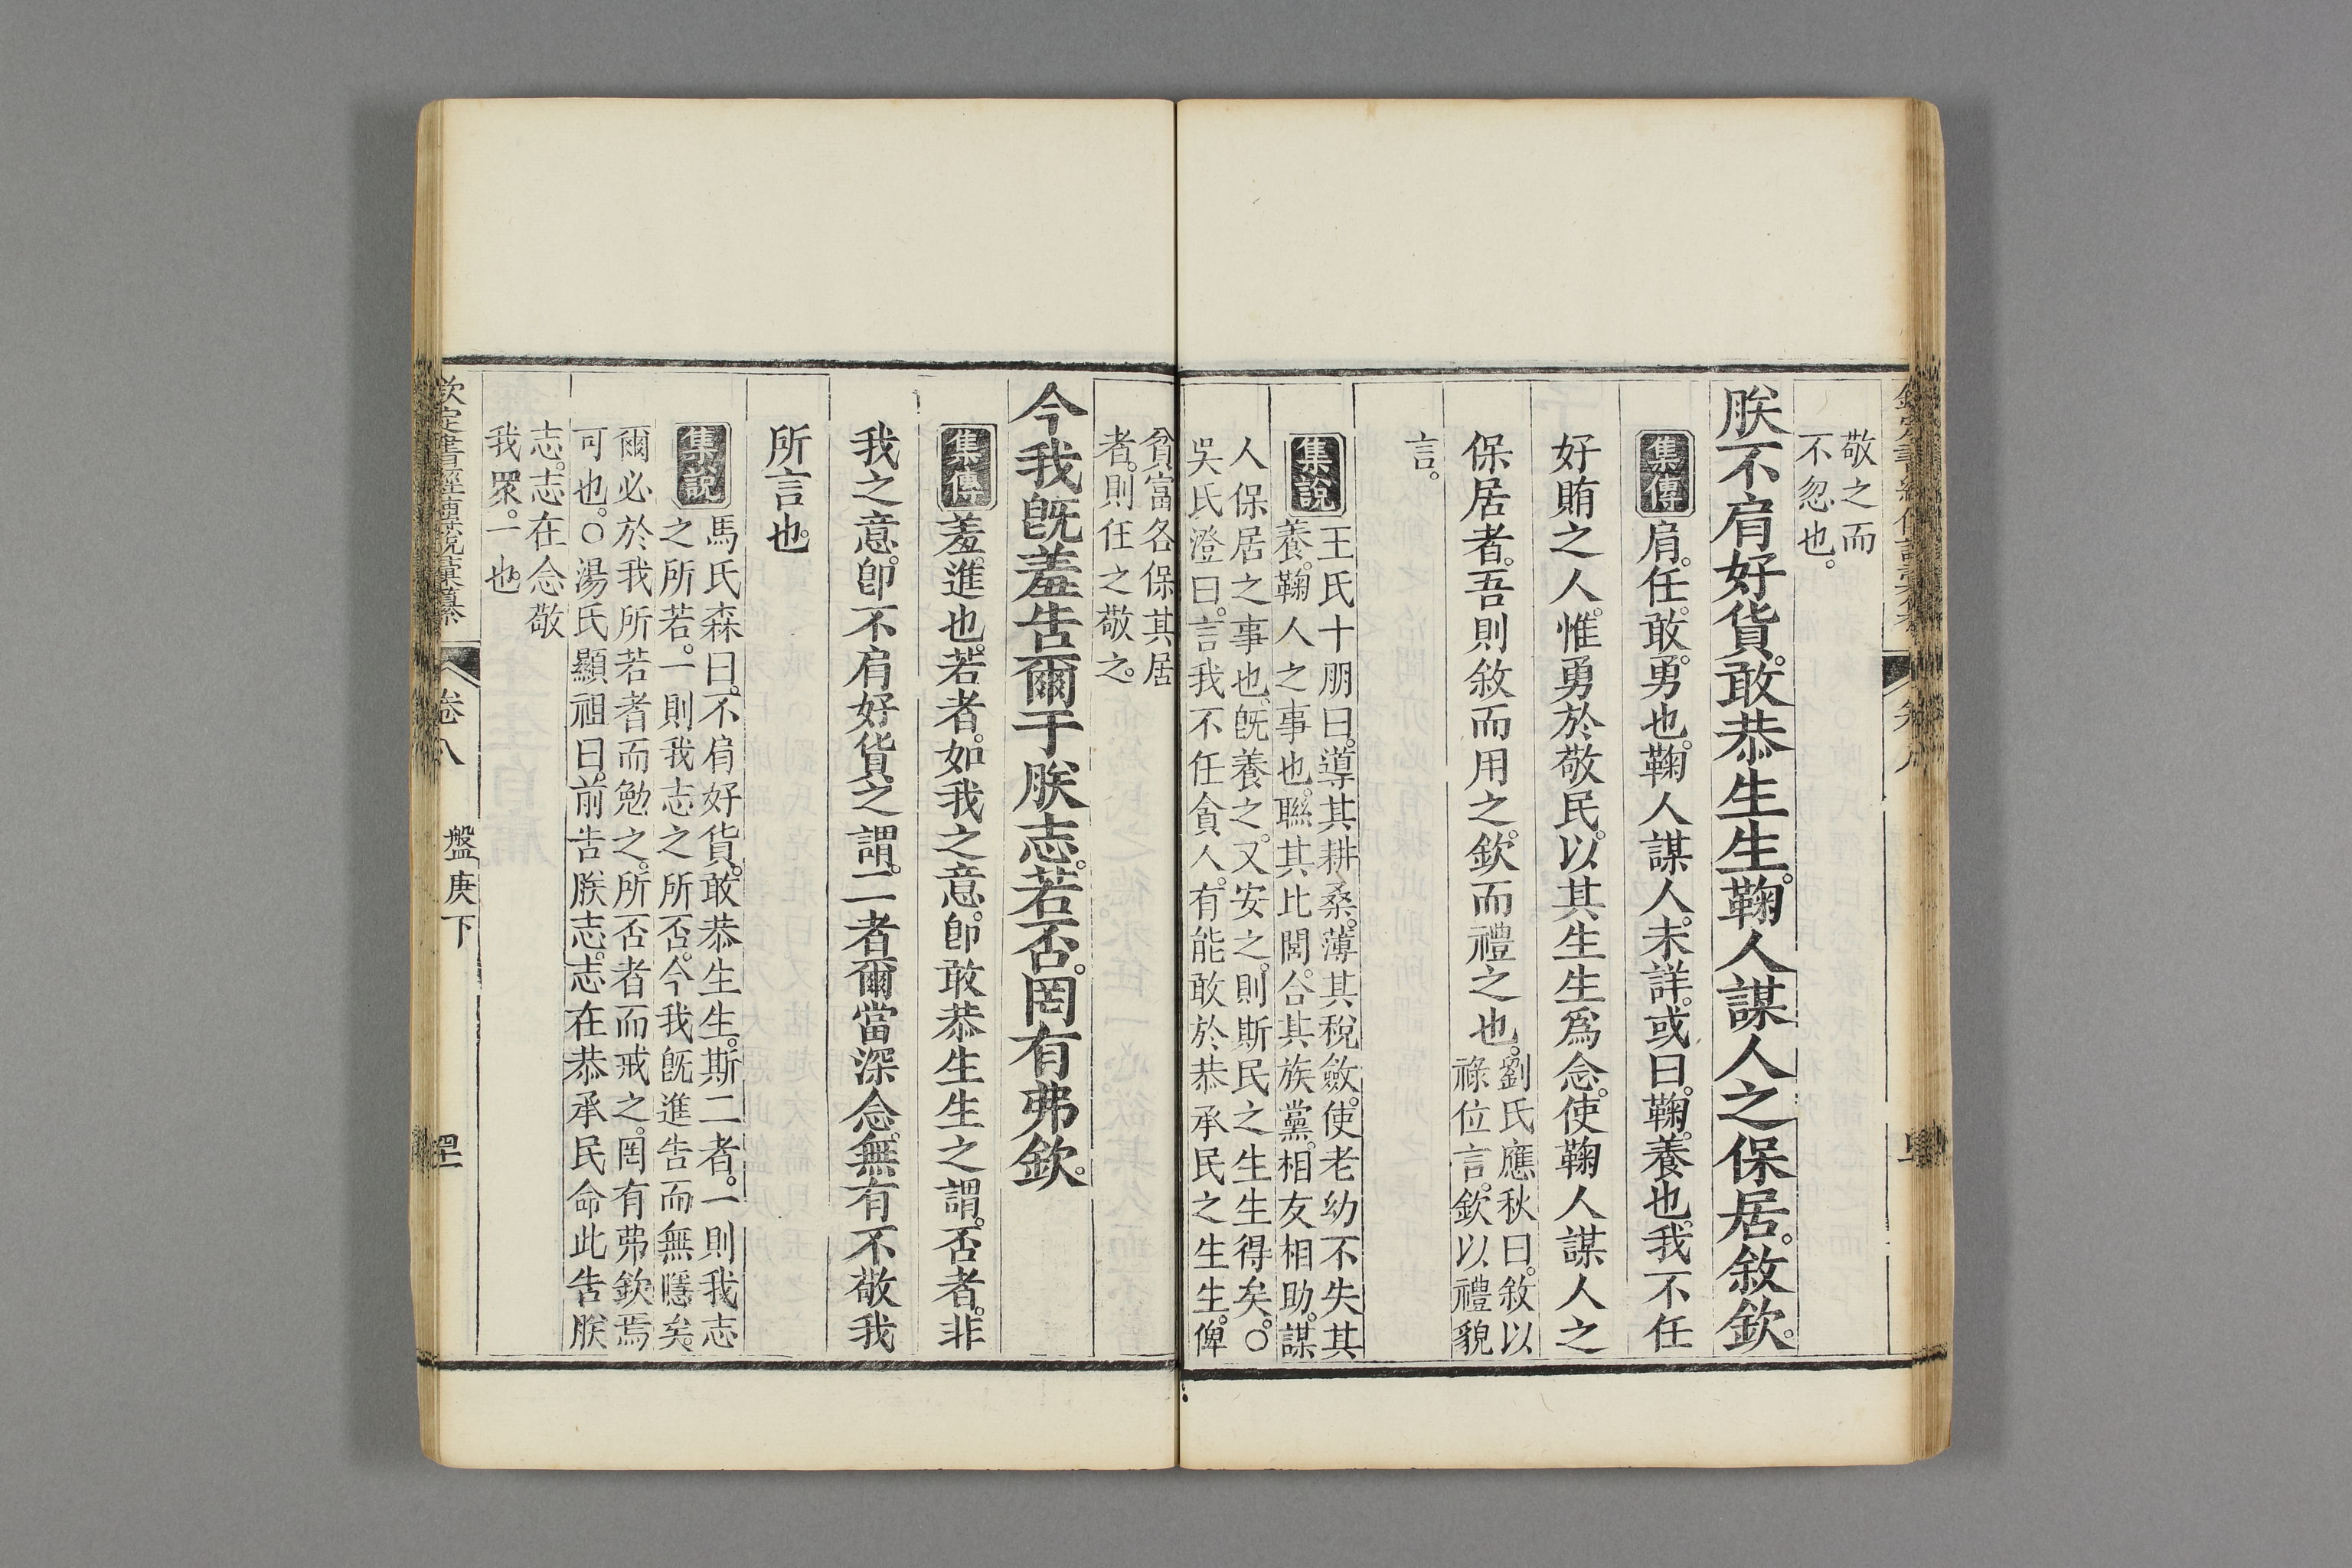 敬之而
不忽也。
朕不肩好貨。敢恭生生。鞠人謀人之保居。敘欽。
集傳 肩。任。敢。勇也。鞠人謀人。未詳。或曰。鞠。養也。我不任
好賄之人。惟勇於敬民。以其生生爲念。使鞠人謀人之
保居者。吾則敘而用之。欽而禮之也。劉氏應秋曰。敘以
祿位言。欽以禮貌
言。
集說 王氏十朋曰。導其耕桑。薄其稅斂。使老幼不失其
養。鞠人之事也。聯其比閭。合其族黨。相友相助。謀
人保居之事也。旣養之。又安之。則斯民之生生得矣。○
吳氏澄曰。言我不任貪人。有能敢於恭承民之生生。俾
貧富各保其居
者。則任之敬之。
今我旣羞告爾于朕志。若否。罔有弗欽。
集傳 羞。進也。若者。如我之意。卽敢恭生生之謂。否者。非
我之意。卽不肩好貨之謂。二者爾當深念。無有不敬我
所言也。
集說 馬氏森曰。不肩好貨。敢恭生生。斯二者。一則我志
之所若。一則我志之所否。今我旣進告而無隱矣。
爾必於我所若者而勉之。所否者而戒之。罔有弗欽焉
可也。○湯氏顯祖曰。前告朕志。志在恭承民命。此告朕
志。志在念敬
我眾。一也。
欽定書經傳說彙纂
卷八
盤庚下